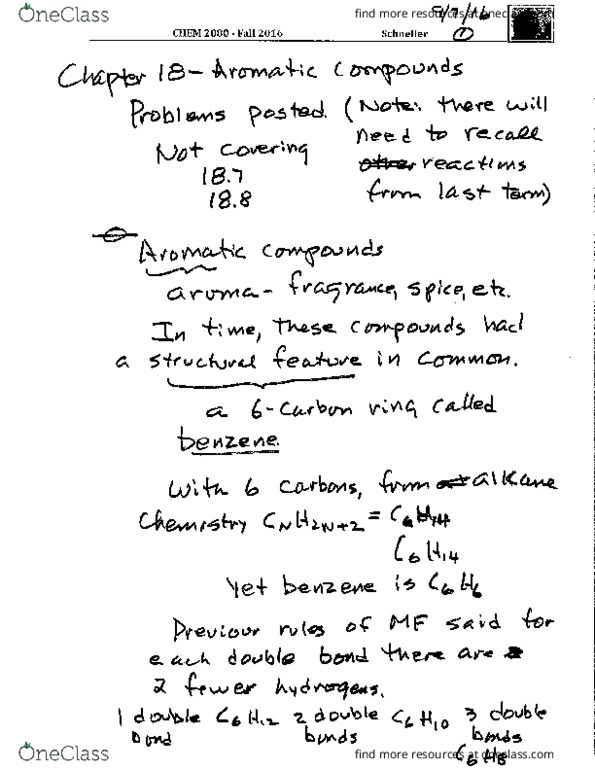 OneClass
find more resources at oneclass.com
8/17/16
CHEM 2000 - Fall 2016 Schneller ①
Chapter 18 - Aromatic Compounds
Problems posted. (Note: there will
need to recall
Not covering other reactions
18.7
18.8 from last term)
Aromatic compounds
aroma - fragrance, spice, etc.
In time, these compounds had
a structural feature in common.
a 6-carbon ring called
benzene.
With 6 carbons, from alkane
Chemistry CNH2N+2 = C6H14
C6H14
Yet benzene is C6H6
Previour rules of MF said for
each double bond there are
2 fewer hydrogens.
1 double C6H12 2 double C6H10 3 double
bond bonds bonds
C6H8
OneClass
find more resources at oneclass.com